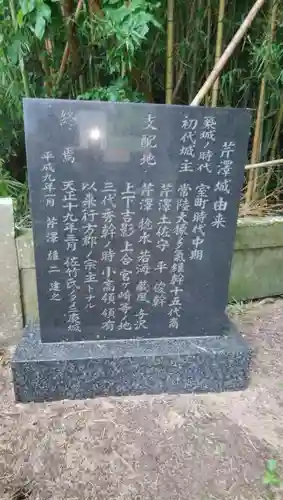 芹澤城由来
築城ノ時代 室町時代中期
初代城主 常陸大掾多気維幹十五代裔
芹澤土佐守 平 俊幹
支配地 芹澤 捻木 若海 蔵風 与沢
上下吉影 上合 宮ヶ崎等ノ地
三代秀幹ノ時 小高領領有
以テ行方郡ノ宗主トナル
終焉 天正十九年三月 佐竹氏ノタメ落城
平成九年一月 芹澤雄二 建之